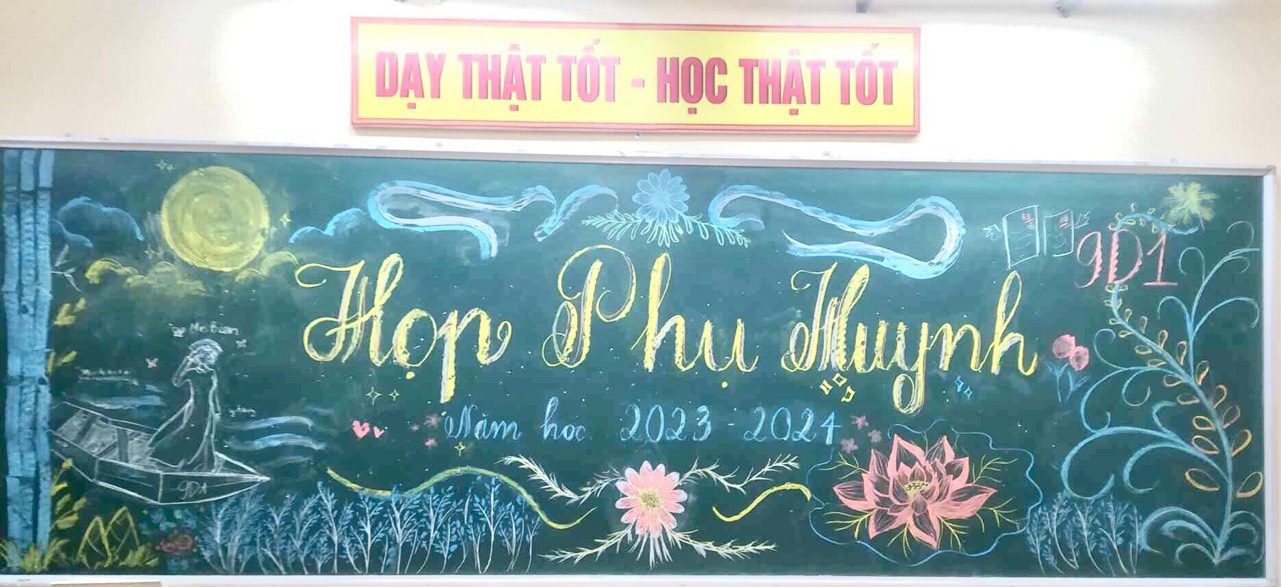 DẠY THẬT TỐT - HỌC THẬT TỐT
9D1
Họp Phụ Huynh
Năm học 2023 - 2024
9D1